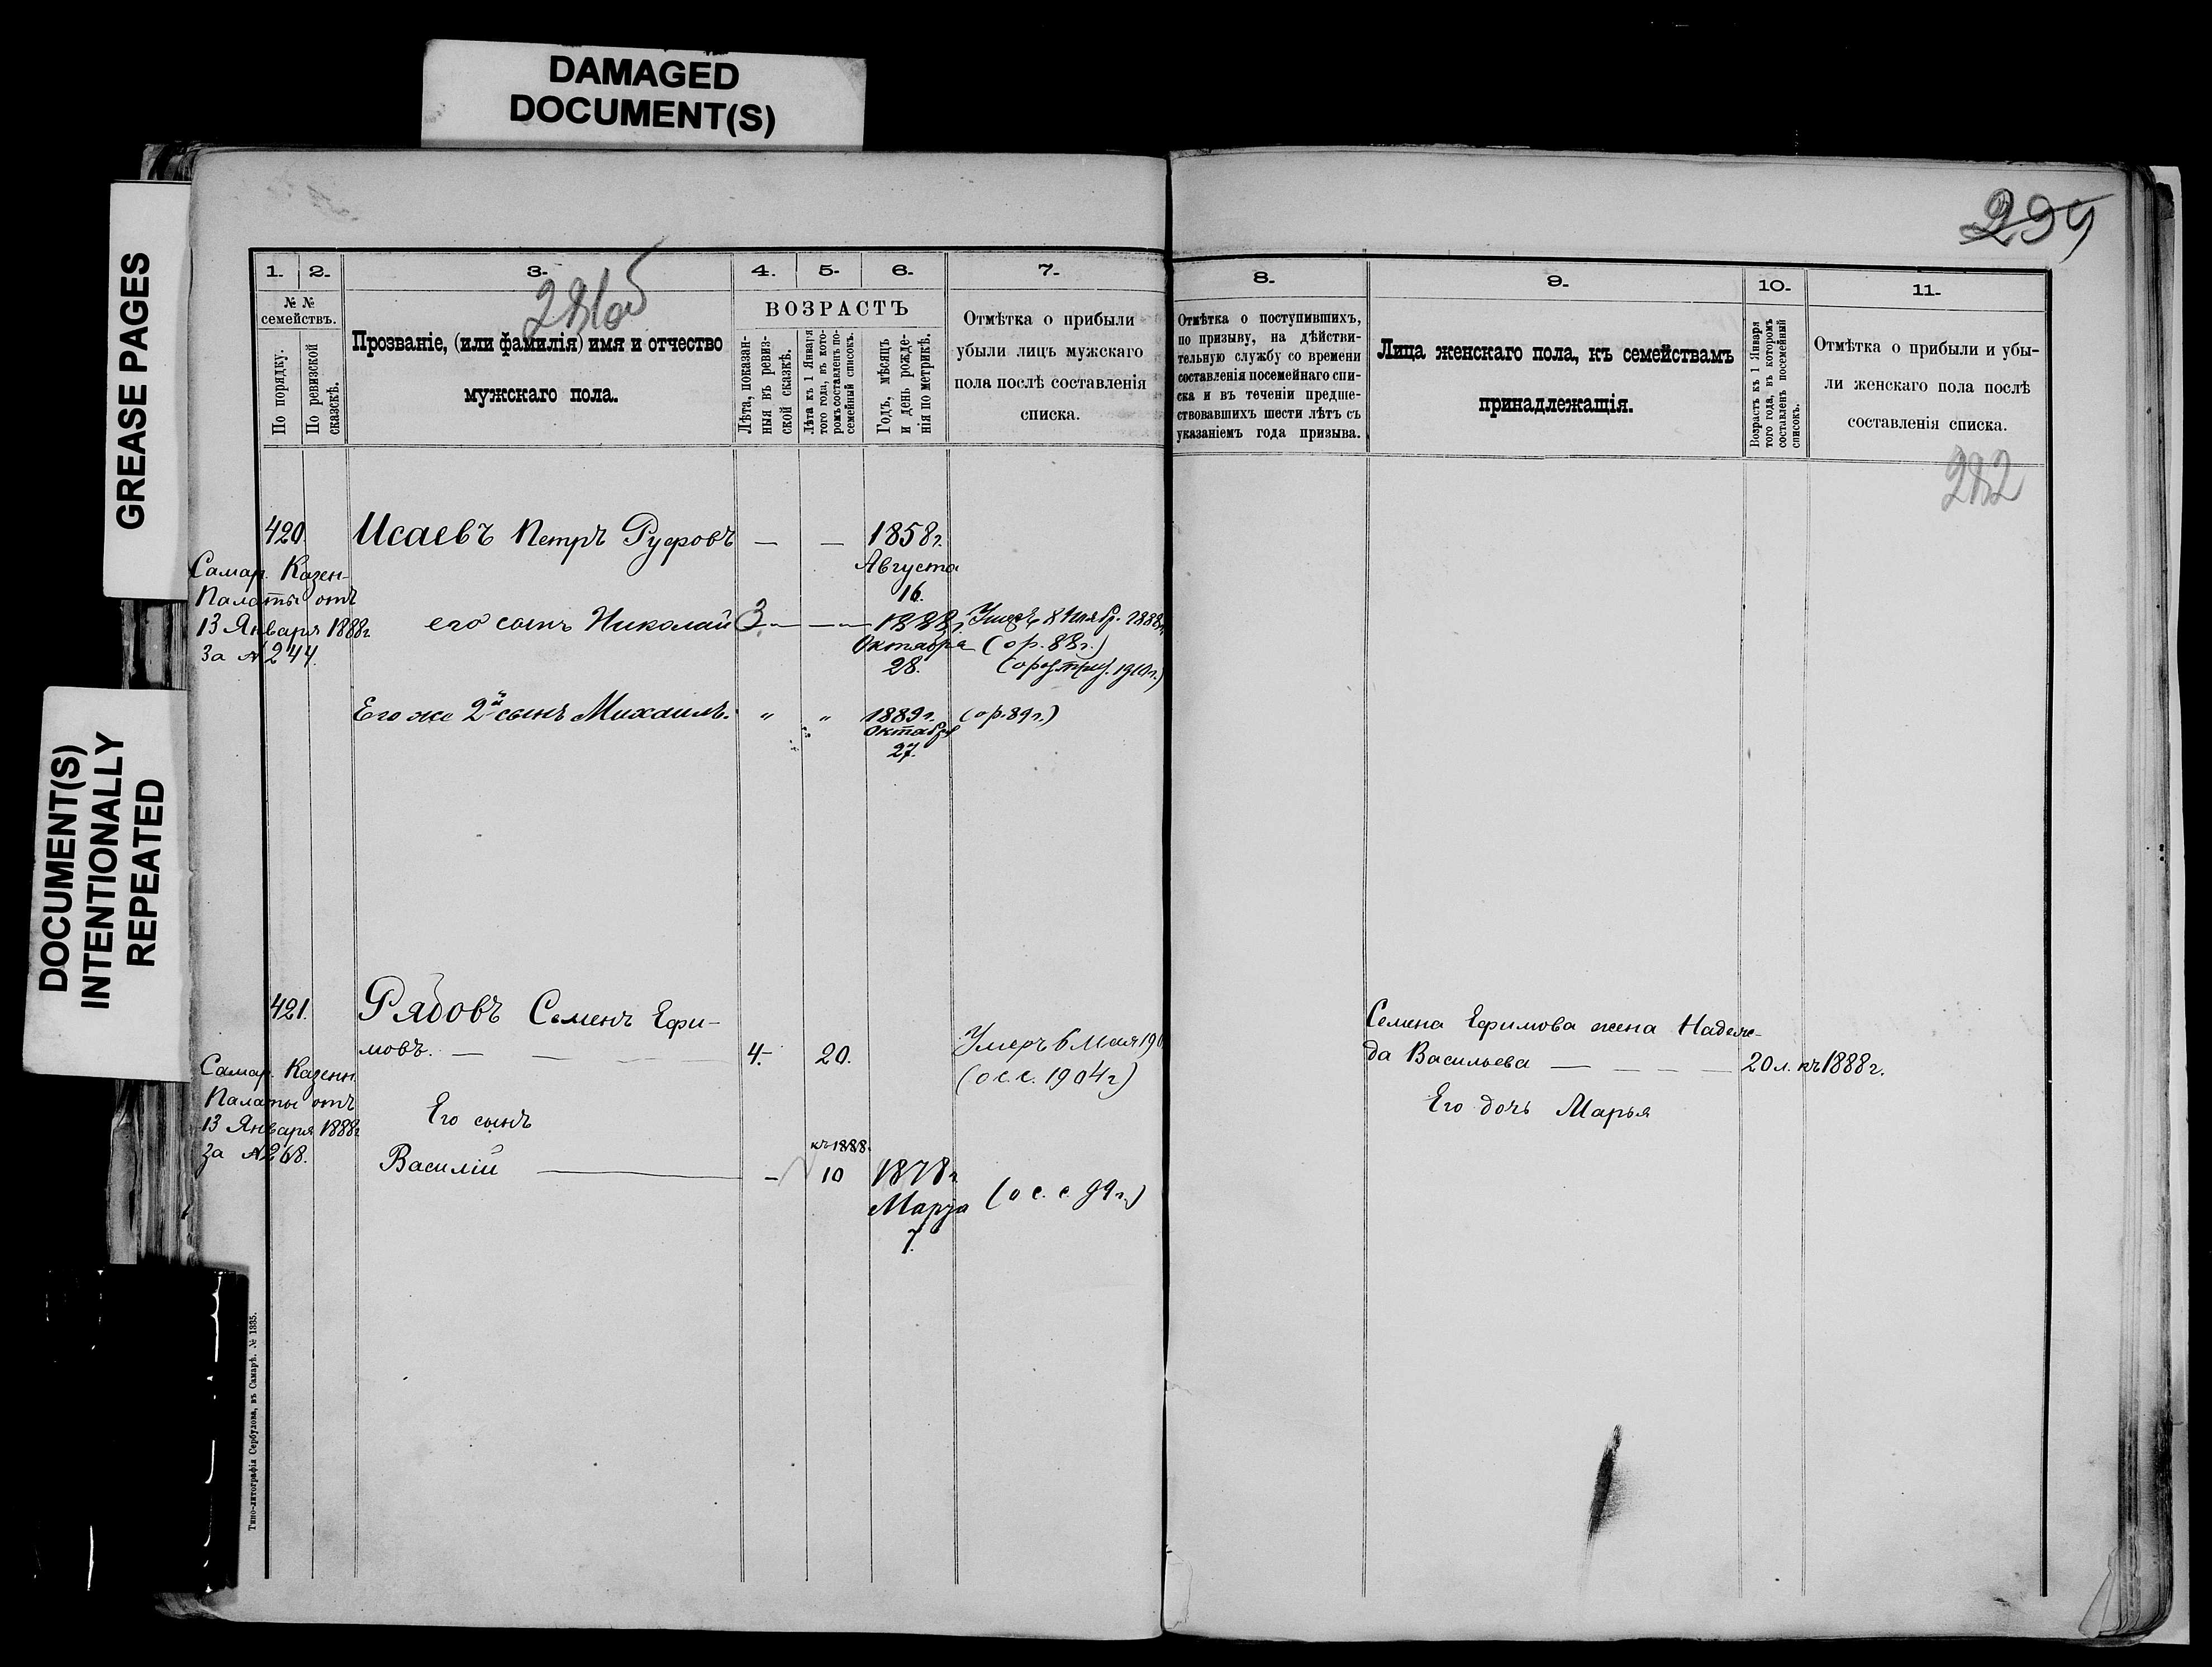 DAMAGED
DOCUMENT(S)
GREASE PAGES
DOCUMENT(S)
INTENTIONALLY
REPEATED
299
1.
2.
3.
4.
5.
6.
7.
281об
№ №
семействъ.
По порядку.
По ревизской
сказкѣ.
Прозваніе, (или фамилія) имя и отчество
мужскаго пола.
ВОЗРАСТЪ
Лѣта, показан-
ныя въ ревиз-
ской сказкѣ.
Лѣта къ 1 Января
того года, въ кото-
ромъ составленъ по-
семейный списокъ.
Годъ, мѣсяцъ
и день рожде-
нія по метрикѣ.
Отмѣтка о прибыли
убыли лицъ мужскаго
пола послѣ составленія
списка.
420.
Исаевъ Петръ Руфовъ — — 1858г.
Августа
16.
Самар. Казен-
Палаты отъ
13 Января 1888г
За №244.
его сынъ Николай 3 — — 1888г.
Октября
28.
8 Ноябр. 1888г
(ор. 88г.)
1910г.)
Его же 2й сынъ Михаилъ. " " 1889г. (ор. 89г.)
Октября
27.
421.
Рядовъ Семенъ Ефи-
мовъ. — 4. 20.
Умеръ 6 Мая 190
(о с. с. 1904г)
Самар. Казенн.
Палаты отъ
13 Января 1888г
За №268.
Его сынъ
Василій — — къ 1888.
10
1878г.
Марта
7.
(о с. с 99г.)
Типо-литографія Сербулова, въ Самарѣ. № 1335.
8.
9.
10.
11.
Отмѣтка о поступившихъ,
по призыву, на дѣйстви-
тельную службу со времени
составленія посемейнаго спи-
ска и въ теченіи предше-
ствовавшихъ шести лѣтъ съ
указаніемъ года призыва.
Лица женскаго пола, къ семействамъ
принадлежащія.
Возрастъ къ 1 Января
того года, въ которомъ
составленъ посемейный
списокъ.
Отмѣтка о прибыли и убы-
ли женскаго пола послѣ
составленія списка.
282
Семена Ефимова жена Надеж-
да Васильева — 20 л. къ 1888г.
Его дочь Марья